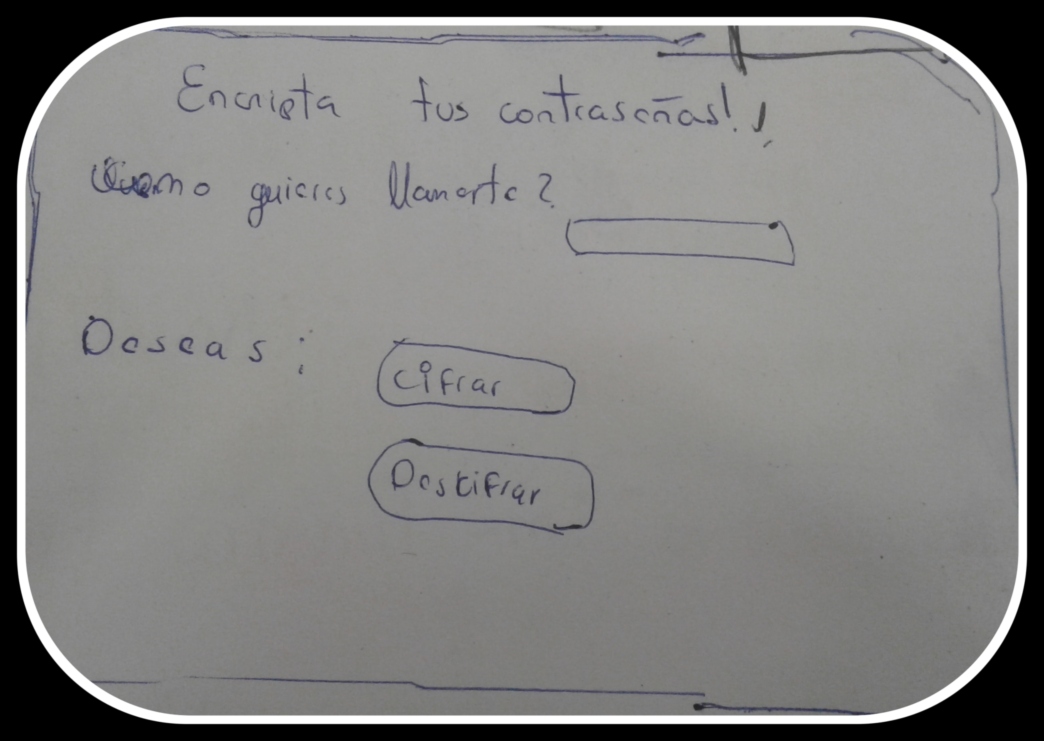 Encripta tus contraseñas!!
Como quieres llamarte?
Deseas:
Cifrar
Descifrar